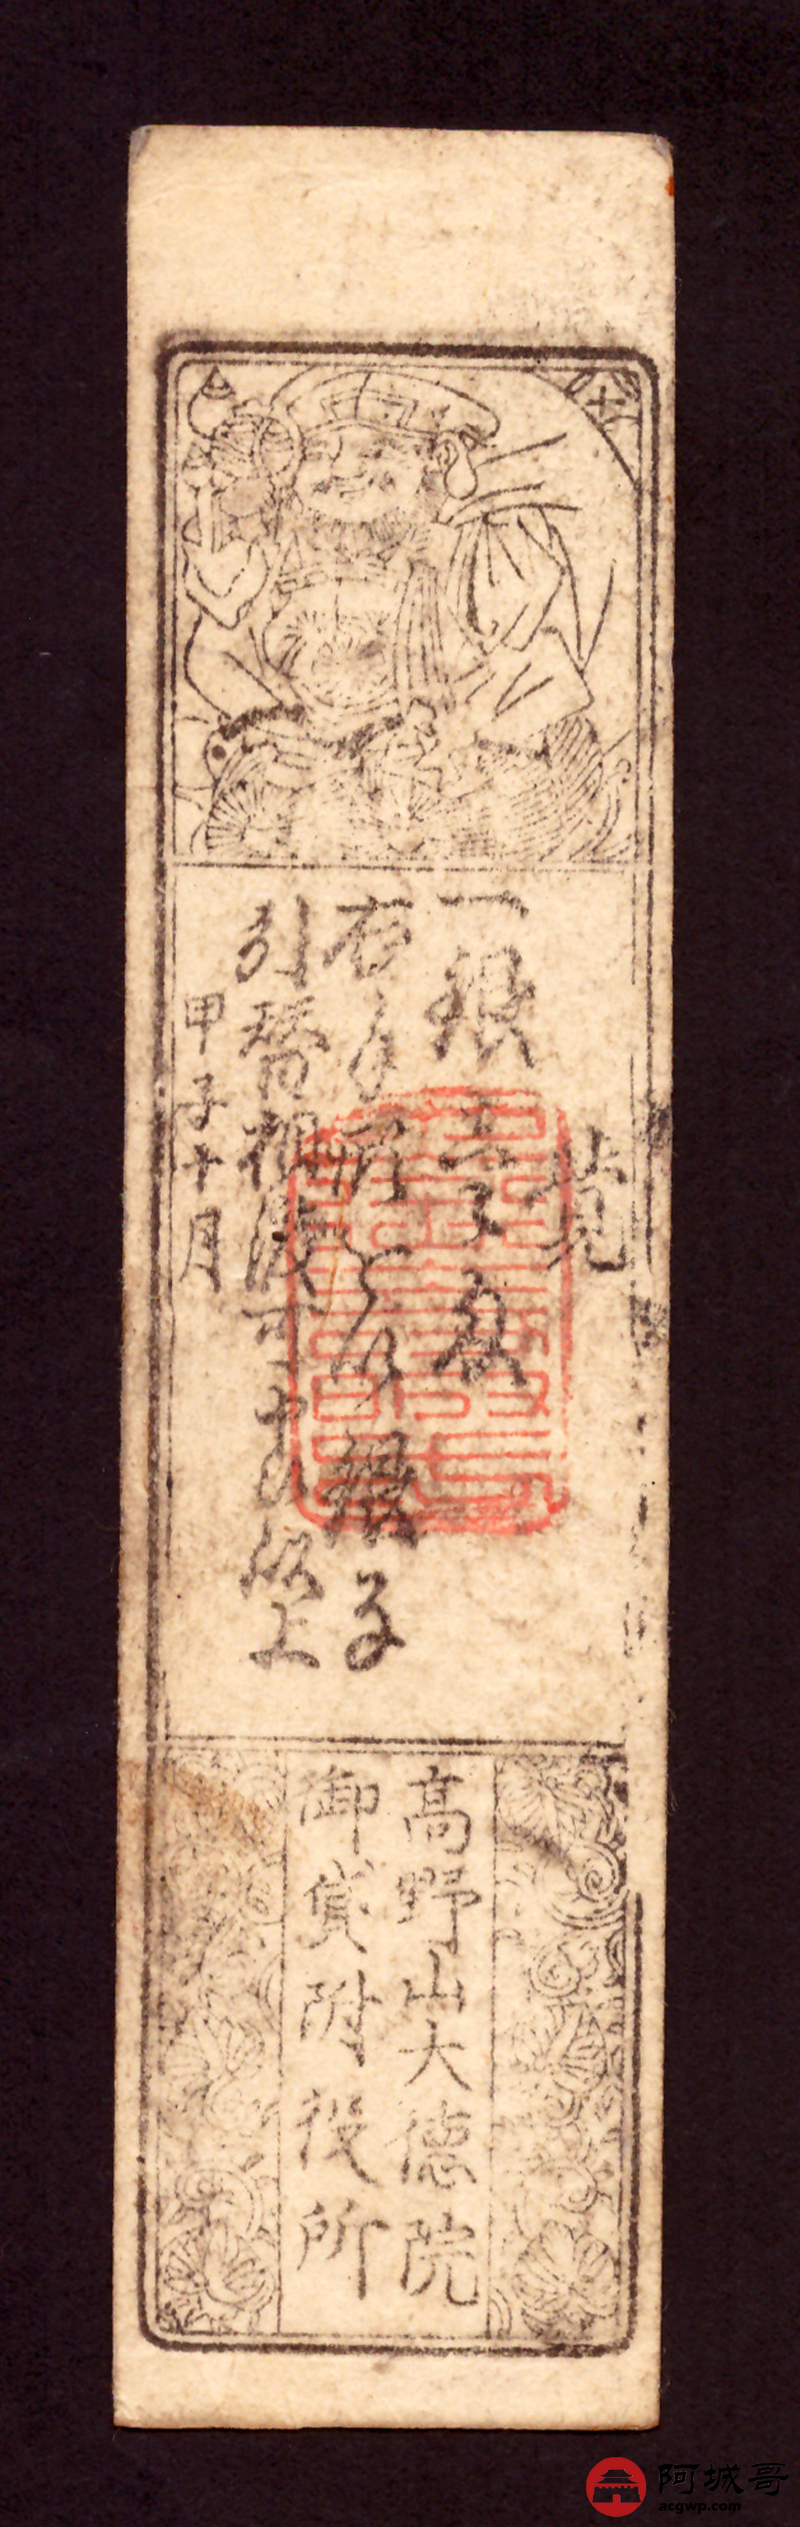 覚
一銀壹匁
右手形を以銀子
引替相渡可申候以上
甲子十月
高野山大徳院
御貸附役所
阿城哥
acgwp.com